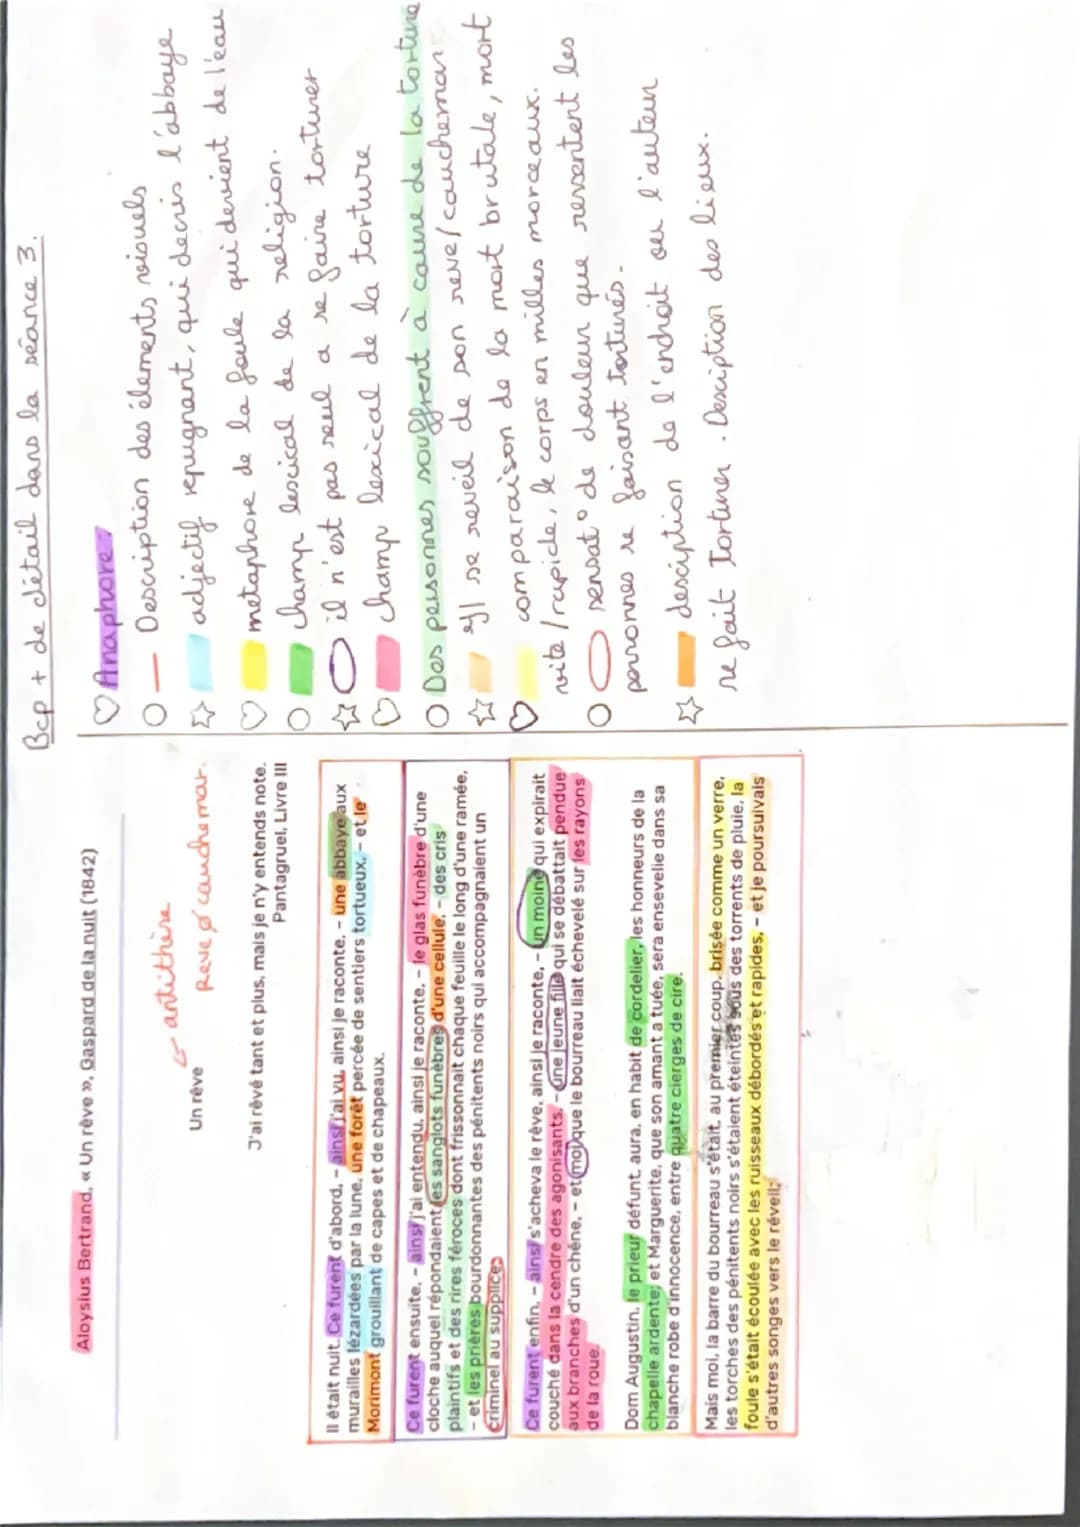 Bcp + de détail dans la séance 3.
Aloysius Bertrand, « Un rêve », Gaspard de la nuit (1842)
antithèse
Un rêve
Reve ≠ cauchemar.
J'ai rêvé tant et plus, mais je n'y entends note.
Pantagruel, Livre III
Il était nuit. Ce furent d'abord, – ainsi j'ai vu, ainsi je raconte, – une abbaye aux
murailles lézardées par la lune, une forêt percée de sentiers tortueux, – et le
Morimont grouillant de capes et de chapeaux.
Ce furent ensuite, – ainsi j'ai entendu, ainsi je raconte, – le glas funèbre d'une
cloche auquel répondaient les sanglots funèbres d'une cellule, – des cris
plaintifs et des rires féroces dont frissonnait chaque feuille le long d'une ramée,
– et les prières bourdonnantes des pénitents noirs qui accompagnaient un
criminel au supplice.
Ce furent enfin, – ainsi s'acheva le rêve, ainsi je raconte, – un moine qui expirait
couché dans la cendre des agonisants, – une jeune fille qui se débattait pendue
aux branches d'un chêne, – et moi que le bourreau liait échevelé sur les rayons
de la roue.
Dom Augustin, le prieur défunt, aura, en habit de cordelier, les honneurs de la
chapelle ardente; et Marguerite, que son amant a tuée, sera ensevelie dans sa
blanche robe d'innocence, entre quatre cierges de cire.
Mais moi, la barre du bourreau s'était, au premier coup, brisée comme un verre,
les torches des pénitents noirs s'étaient éteintes sous des torrents de pluie, la
foule s'était écoulée avec les ruisseaux débordés et rapides, – et je poursuivais
d'autres songes vers le réveil.
Anaphore:
Description des élements visuels
adjectif repugnant, qui decris l'abbaye
metaphore de la foule qui devient de l'eau
champ lescical de la religion.
il n'est pas seul a se faire torturer
champ lexical de la torture
Des personnes souffrent à cause de la torture
Il se reveil de son reve/cauchemar
comparaison de la mort brutale, mort
vite/rapide, le corps en milles morceaux.
sensat° de douleur que ressentent les
personnes se faisant torturés.
desciption de l'endroit ou l'auteur
se fait torturer. Desciption des lieux.